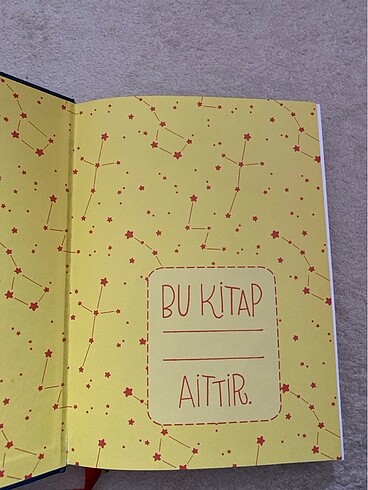 BU KİTAP
AİTTİR.